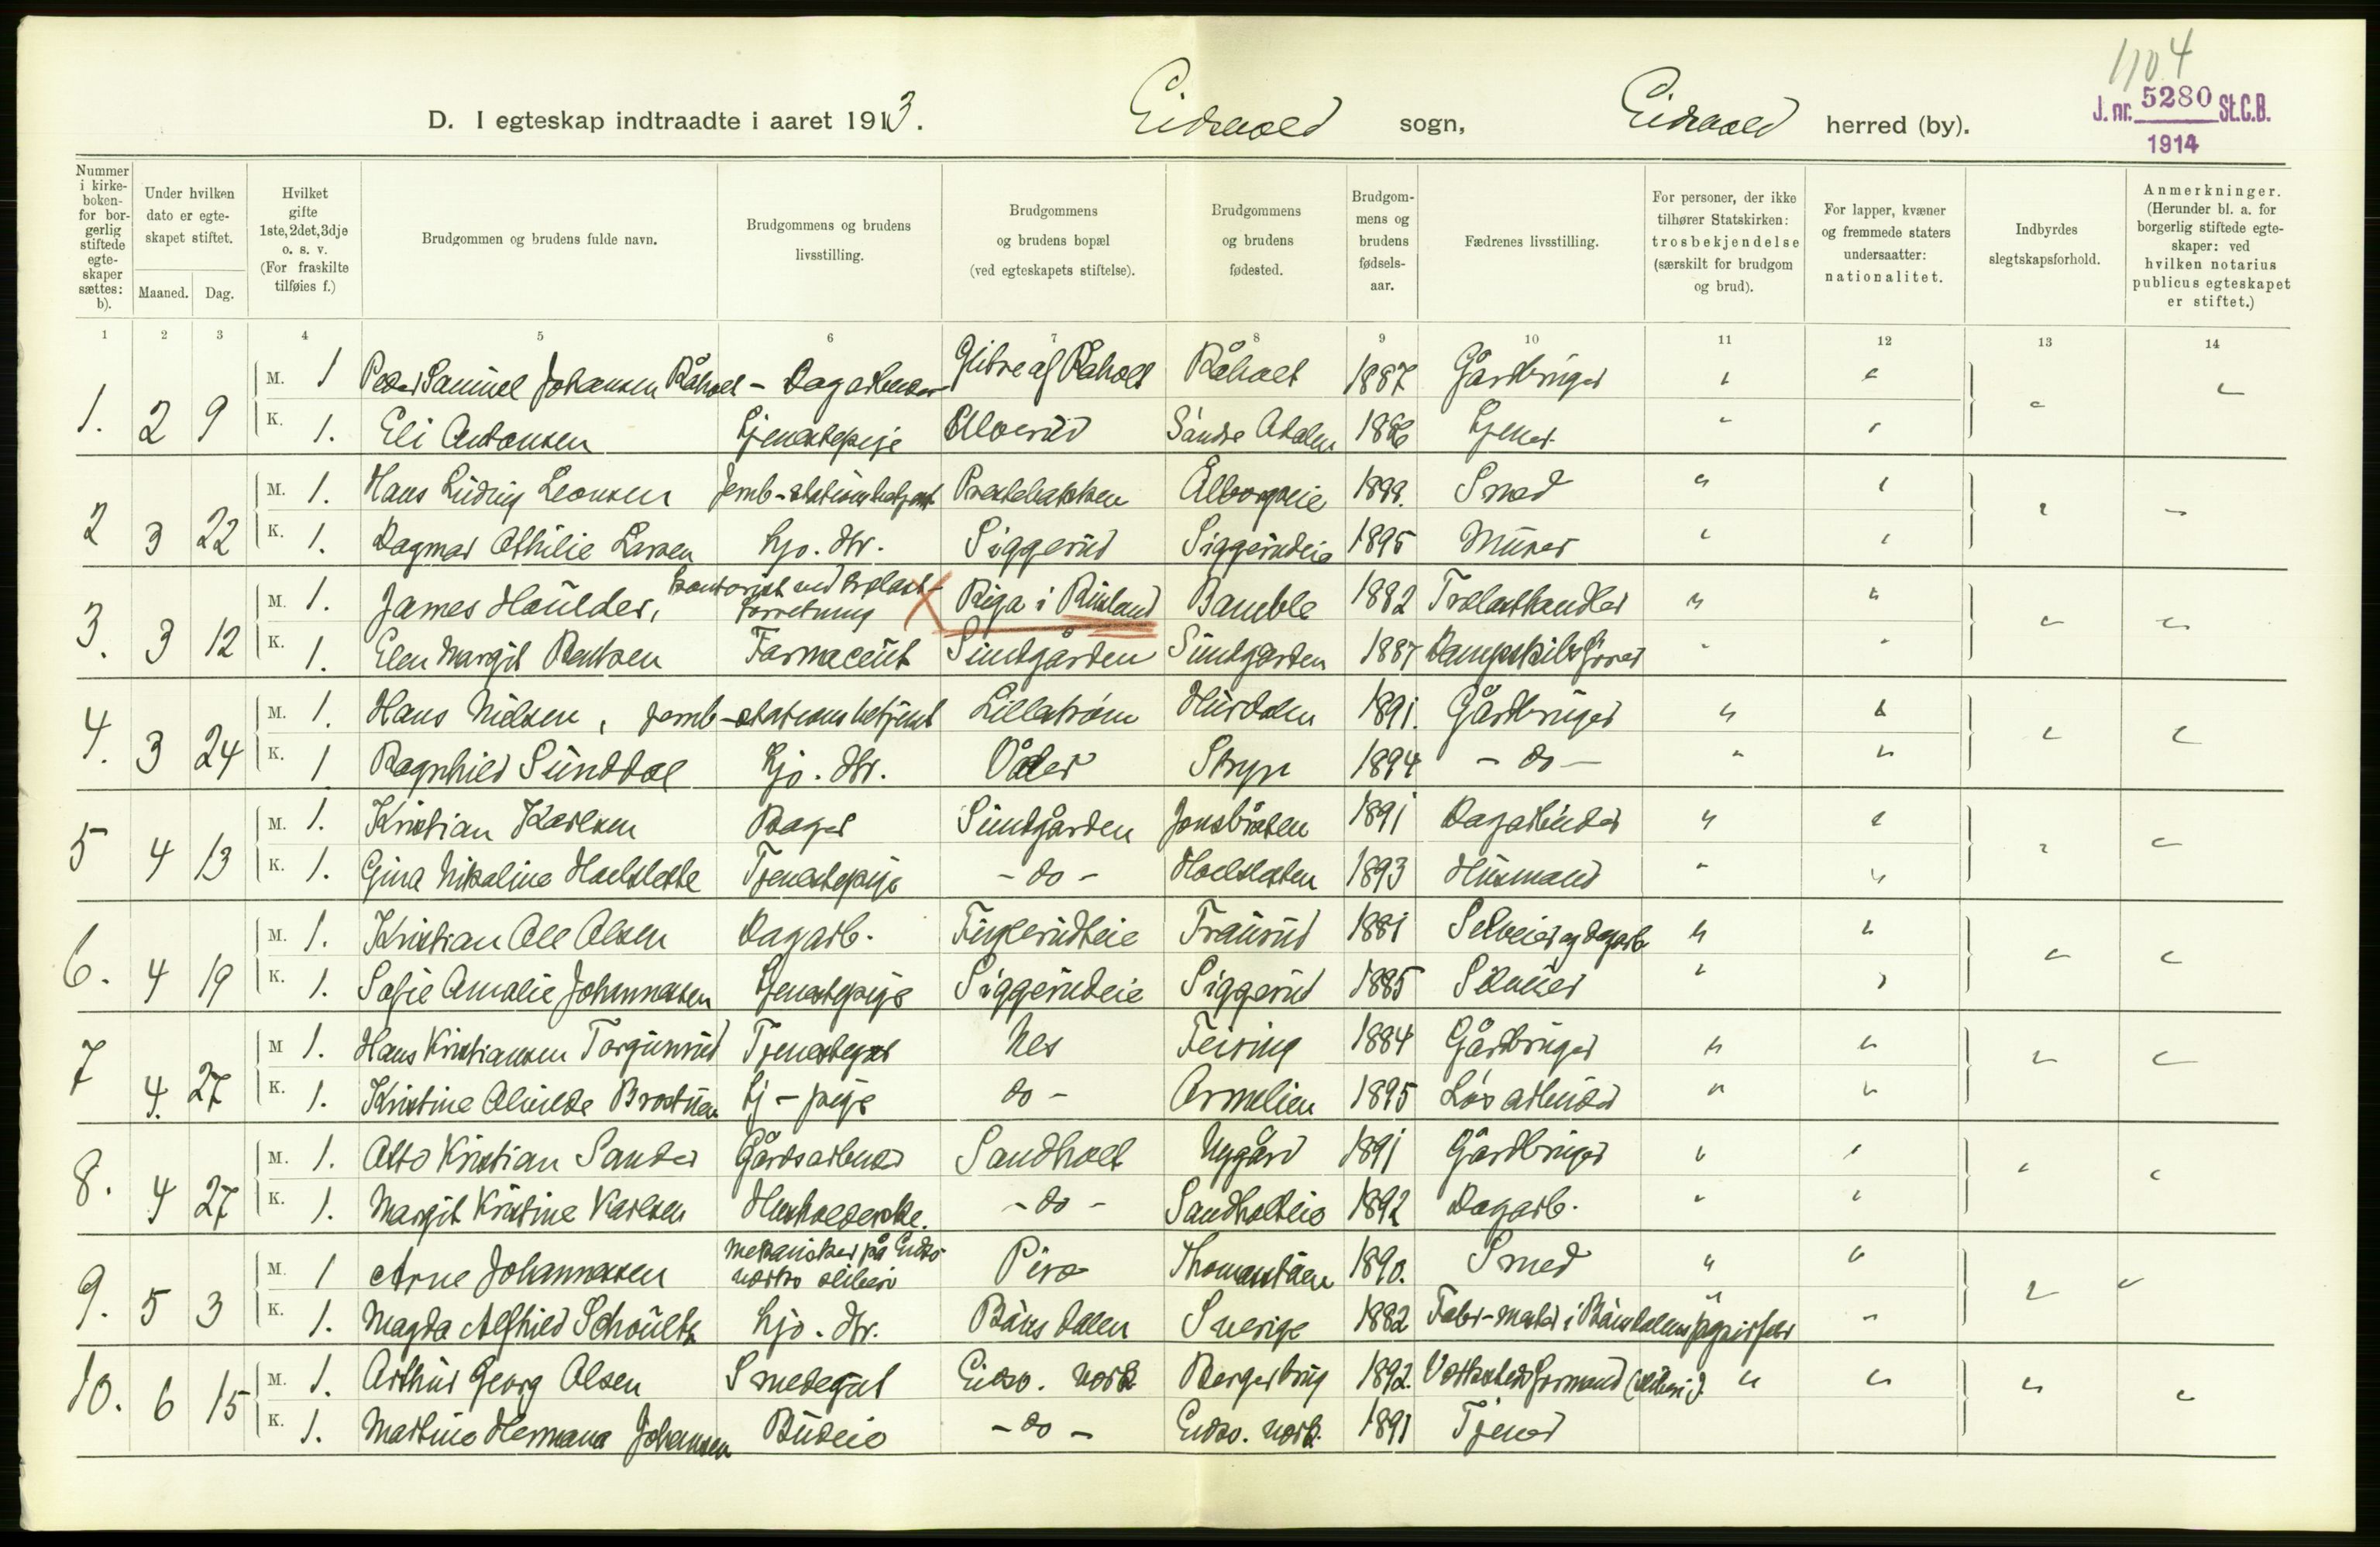 1104
J. nr. 5280 St.C.B.
1914
D. I egteskap indtraadte i aaret 1913. Eidsvold sogn, Eidsvold herred (by).
Nummer i kirkeboken for borgerlig stiftede egteskaper sættes: b).
Under hvilken dato er egteskapet stiftet.
Maaned. Dag.
Hvilket gifte 1ste, 2det, 3dje o. s. v. (For fraskilte tilføies f.)
Brudgommen og brudens fulde navn.
Brudgommens og brudens livsstilling.
Brudgommens og brudens bopæl (ved egteskapets stiftelse).
Brudgommens og brudens fødested.
Brudgommens og brudens fødselsaar.
Fædrenes livsstilling.
For personer, der ikke tilhører Statskirken: trosbekjendelse (særskilt for brudgom og brud).
For lapper, kvæner og fremmede staters undersaatter: nationalitet.
Indbyrdes slegtskapsforhold.
Anmerkninger. (Herunder bl. a. for borgerlig stiftede egteskaper: ved hvilken notarius publicus egteskapet er stiftet.)
1 2 3 4 5 6 7 8 9 10 11 12 13 14
1. 2 9 M. 1 Peder Samuel Johansen Råholt - Dagarbeider Råholt Råholt 1887 Gårdbruger " "
K. 1. Eli Antonsen Tjenestepige Søndre Adalen 1886 Tjener " "
2 3 22 M. 1. Hans Ludvig Leonsen Jernb-stationsbetjent Prestebakken 1888. Smed " "
K. 1. Dagmar Othilie Larsen Hjo. dtr. Siggerud Siggerudeie 1895 Murer " "
3. 3 12 M. 1. James Houlder, kontorist ved trælastforretning X Riga i Rusland Bamble 1882 Trælasthandler " "
K. 1. Elen Margit Bentsen Farmaceut Sundgården Sundgården 1887 Dampskibsfører " "
4. 3 24 M. 1. Hans Nielsen, Jernb-stationsbetjent Lillestrøm Hurdalen 1891. Gårdbruger " "
K. 1 Ragnhild Sunddal Hjo. dtr. Stryn 1894 - do - " "
5 4 13 M. 1. Kristian Karlsen Bager Sundgården Jønsbråten 1891 Dagarbeider " "
K. 1. Gina Nikoline Holtslette Tjenestepige - do - Holtsletten 1893 Husmand " "
6. 4 19 M. 1. Kristian Ole Olsen Dagarb. Fuglerudeie Traurud 1881 Selveier og dagarb " "
K. 1. Sofie Amalie Johannessen Tjenestepige Siggerudeie Siggerud 1885 " "
7 4. 27 M 1. Hans Kristiansen Torgunrud Tjenestegut Nes Feiring 1884 Gårdbruger " "
K. 1. Kristine Alvilde Brostuen Tj - pige do - Ormelien 1895 Løsarbeider " "
8. 4 27 M. 1. Otto Kristian Sander Gårdsarbeider Sandholt Nygård 1891 Gårdbruger " "
K. 1. Margit Kristine Karlsen Husholderske. - do - Sandholteie 1892 Dagarb. " "
9. 5 3 M. 1 Arne Johannessen Mekaniker på Eidsv. værks sliberi Thomasstuen 1890. Smed " "
K. 1. Magda Alfhild Schoultz Hjo. dtr. Bøns dalen Sverige 1882 Fabr-mester i Bønsdalens papirfabr " "
10. 6 15 M. 1. Arthur Georg Olsen Smedegut Eidsv. værk 1892. Verkstedsformand (sliberi). " "
K. 1. Martine Hermana Johansen Budeie - do - Eidsv. værk. 1891 Tjener